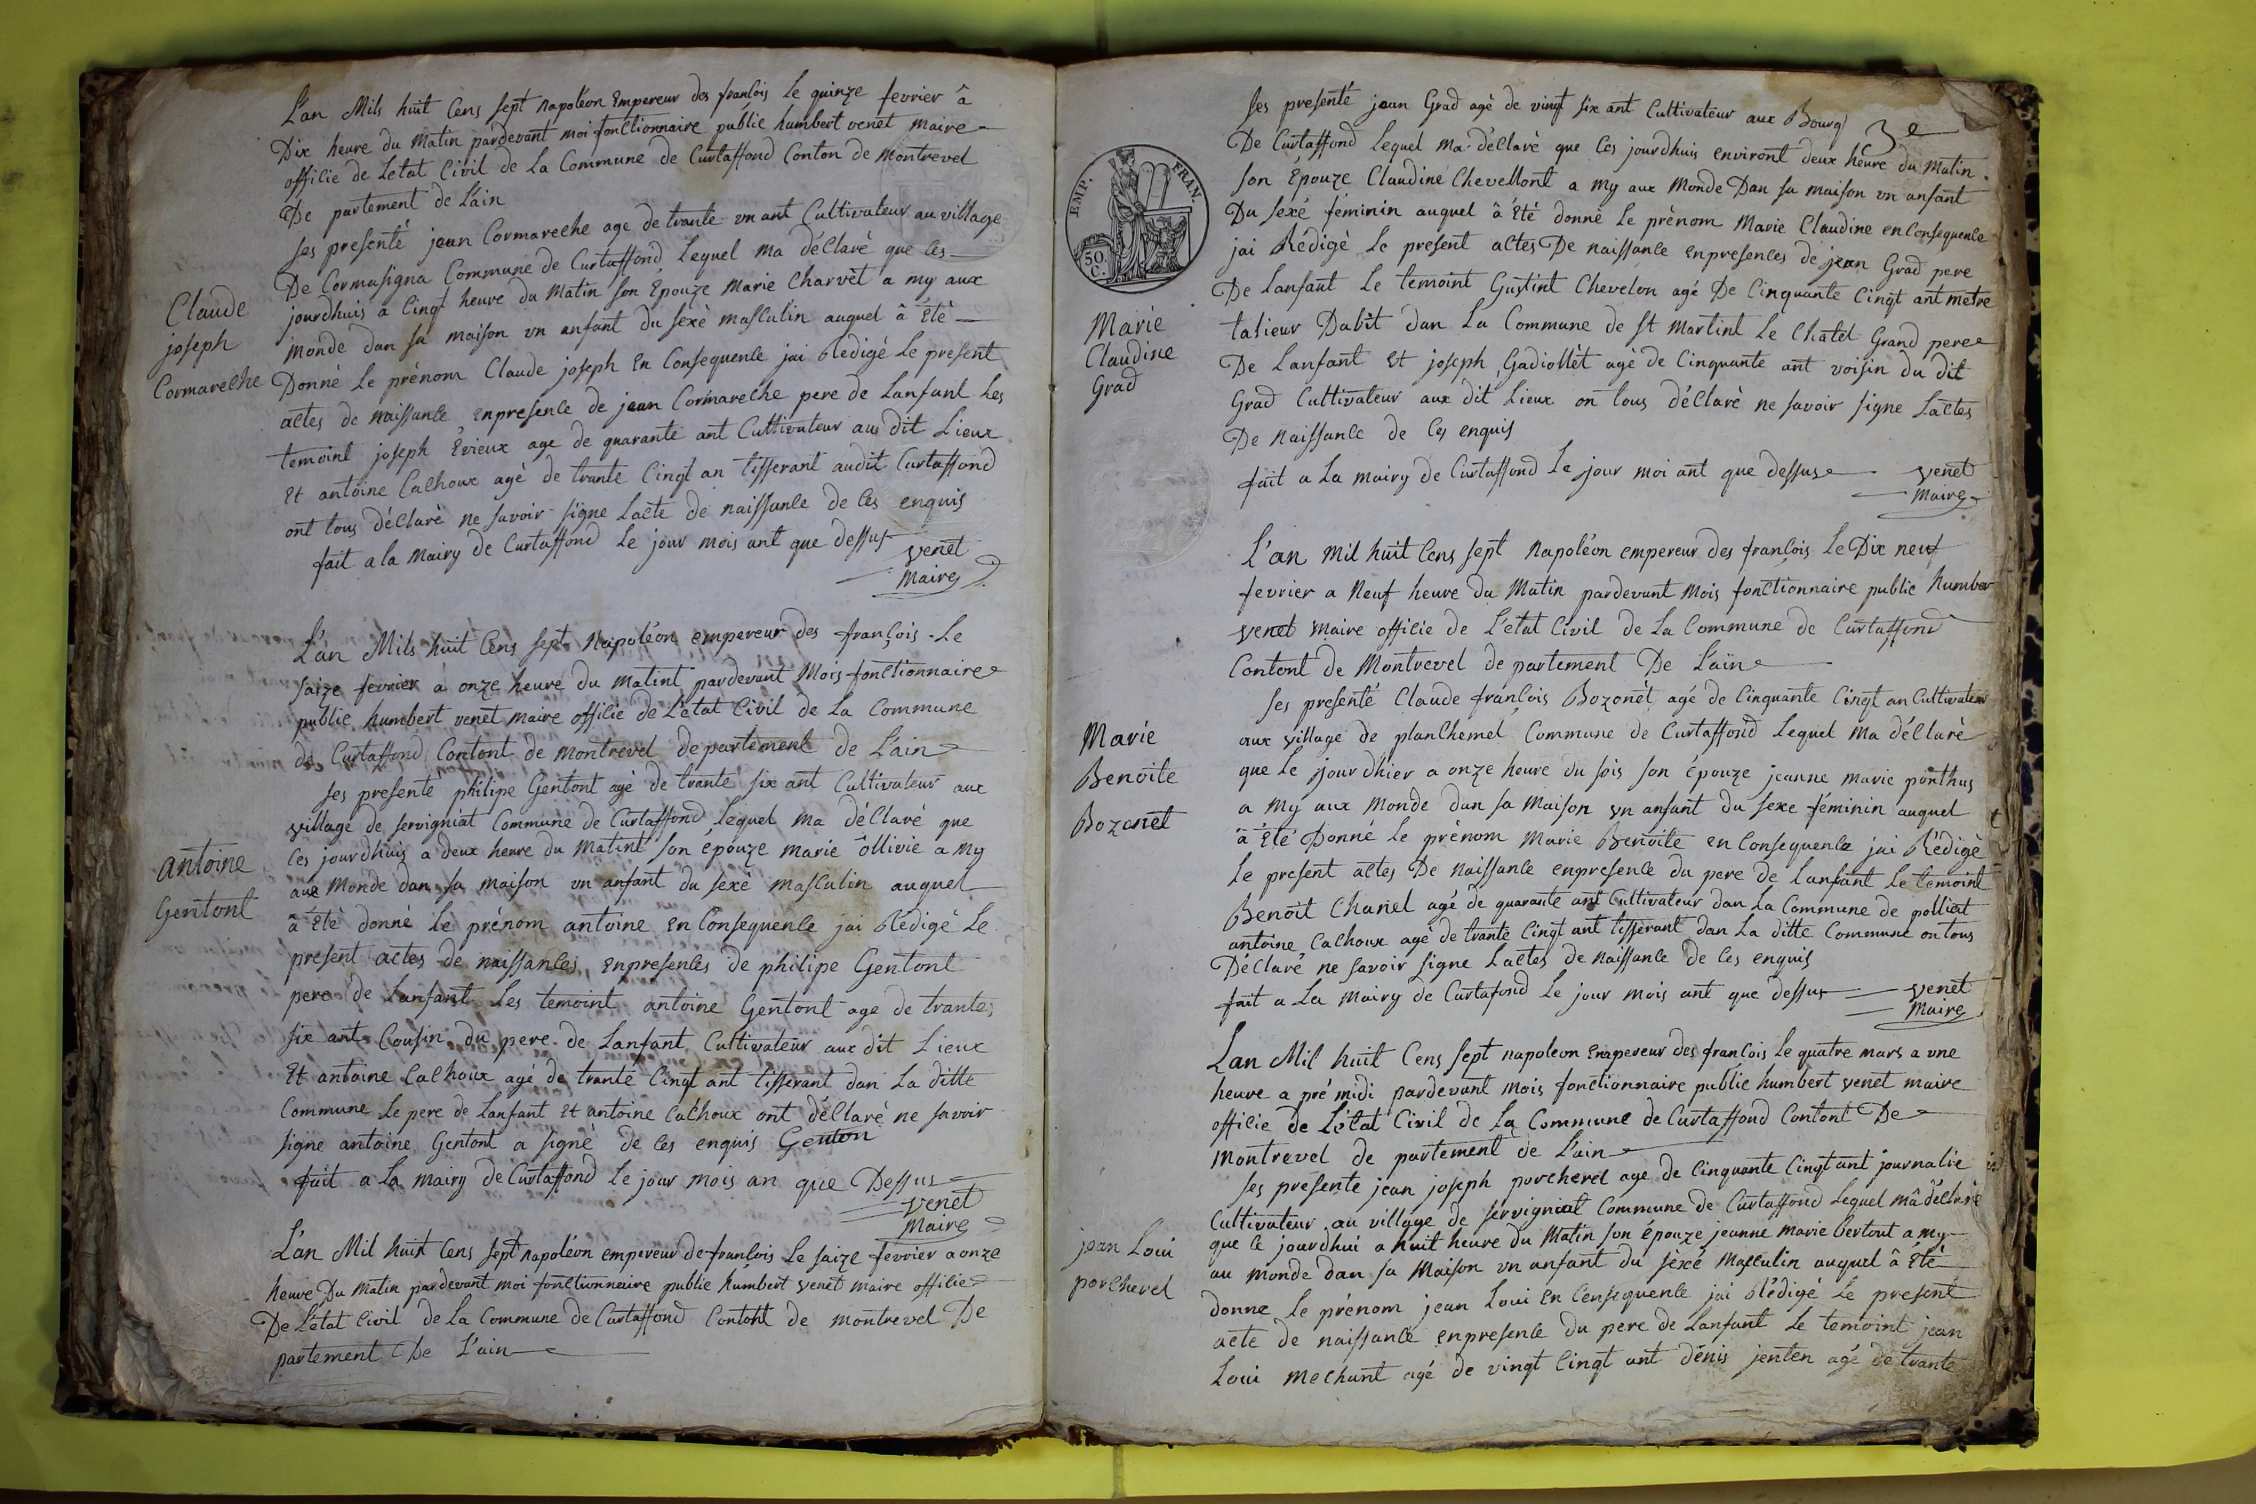 L'an Mils huit Cens sept napoléon Empereur des franÇois le quinze fevrier â
Dix heure du Matin pardevant moi fonctionnaire public humbert venet Maire
officie de Letat Civil de La Commune de Curtaffond Conton de Montrevel
De partement de L'ain
ses presenté jean Cormareche age de trante un ant Cultivateur au village
De Cormasigna Commune de Curtaffond Lequel ma déClaré que Ces
jourdhuis a Cinqt heure du Matin son Épouze Marie Charvèt a my aux
Monde dan sa maison un anfant du sexè masculin auquel â Étè
Donné Le prénom Claude joseph En Consequence jai Redigè Le present
actes de naissance enpresence de jean Cormareche pere de Lanfant Les
temoint joseph Évieux age de quarante ant Cultivateur au dit Lieux
Et antoine Calhoux agè de trante Cinqt an tisserant audit Curtaffond
ont tous déClaré ne savoir signe Lacte de naissance de Ces enquis
fait a la Mairy de Curtaffond Le jour mois ant que dessus
venet
Maire
Claude
joseph
Cormareche
L'an Mils huit Cens sept Napoléon empereur des françois Le
saize fevrier à onze heure du matint pardevant Mois fonctionnaire
public humbert venet maire officie de L'etat Civil de La Commune
de Curtaffond Contont de Montrevel departement de L'ain
ses presente philipe Gentont agé de trante six ant Cultivateur aux
village de servigniat Commune de Curtaffond Lequel ma déClaré que
Ces jourdhuis a deux heure du Matint son épouze marie ôllivie a My
aux Monde dan sa maison un anfant du sexè masculin auquel
â Étè donné Le prénom antoine en Consequence jai Rédigé Le
present actes de naissances enpresences de philipe Gentont
pere de Lanfant Les temoint antoine Gentont age de trante
six ant Cousin du pere de Lanfant Cultivateur aux dit Lieux
Et antoine Calhoux agé de trante Cinqt ant tisserant dan La ditte
Commune Le pere de Lanfant Et antoine Calhoux ont déClaré ne savoir
signe antoine Gentont a signé de Ces enquis Genton
fait a La Mairy de Curtaffond Le jour mois an que Dessus
venet
Maire
antoine
Gentont
L'an Mil huit Cens sept napoléon empereur de franÇois Le saize fevrier a onze
heure Du Matin pardevant moi fonctionnaire public humbert venet maire officie
De L'etat Civil de La Commune de Curtaffond Contont de Montrevel De
partement De L'ain
3e
ses presenté jean Grad agé de vingt six ant Cultivateur aux Bourg
De Curtaffond Lequel ma déClaré que Ces jourdhuis environt deux heure du Matin
son Épouze Claudine Chevellont a my aux Monde Dan sa maison un anfant
Du sexé féminin auquel â Étè donné Le prènom Marie Claudine en Consequence
jai Rédigè Le present actes De naissance enpresences de jean Grad pere
De Lanfant Le temoint Gustint Chevelon agé De Cinquante Cinqt ant metre
talieur Dabit dan La Commune de st Martint Le Chatel Grand pere
De Lanfant Et joseph Gadiollèt agè de Cinquante ant voisin du dit
Grad Cultivateur aux dit Lieux on tous déClaré ne savoir signe Lactes
De naissance de Ces enquis
fait a La mairy de Curtaffond Le jour moi ant que dessus
venet
Maire
EMP. FRAN.
50 C.
Marie
Claudine
Grad
L'an Mil huit Cens sept Napoléon empereur des franÇois Le Dix neuf
fevrier a Neuf heure du Matin pardevant Mois fonctionnaire public humber
venet maire officie de L'etat Civil de La Commune de Curtaffond
Contont de Montrevel de partement De L'ain
ses presenté Claude franÇois Bozonèt agé de Cinquante Cinqt an Cultivateur
aux village de planChemel Commune de Curtaffond Lequel ma déClaré
que Le jour dhier a onze heure du sois son épouze jeanne marie ponthus
a My aux Monde dan sa Maison un anfant du sexe féminin auquel
â Étè Donné Le prènom Marie Benoite en Consequence jai Rédigé
Le present actes De naissance enpresence du pere de Lanfant Le temoint
Benoit Chanel agé de quarante ant Cultivateur dan La Commune de polliat
antoine Calhoux agé de trante Cinqt ant tisserant dan La ditte Commune on tous
DéClaré ne savoir signe Lactes de Naissance de Ces enquis
fait a La Mairy de Curtafond Le jour mois ant que dessus
venet
Maire
Marie
Benoite
Bozonet
Lan Mil huit Cens sept napoleon Enapereur des franCois Le quatre mars a une
heure a pré midi pardevant mois fonctionnaire public humbert venet maire
officie de L'état Civil de La Commune de Curtaffond Contont De
Montrevel de partement de L'ain
ses presente jean joseph porcherel age de Cinquante Cinqt ant journalie
Cultivateur au village de servigniat Commune de Curtaffond Lequel mâ déClaré
que Ce jourdhui a huit heure du Matin son épouze jeanne marie bertont a my
au Monde dan sa Maison un anfant du sèxé Masculin auquel â Étè
donne Le prénom jean Loui en Censequence jai Rédigé Le present
acte de naissance enpresence du pere de Lanfant Le temoint jean
Loui mechant agé de vingt Cinqt ant dénis jenten agé de trante
jean Loui
porcherel